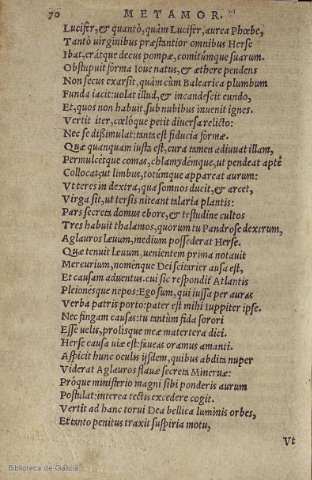 70 METAMOR.
Lucifer, & quantò, quàm Lucifer, aurea Phœbe,
Tantò virginibus præstantior omnibus Herse
Ibat, eratque decus pompæ, comitúmque suarum.
Obstupuit forma Ioue natus, & æthere pendens
Non secus exarsit, quàm cùm Balearica plumbum
Funda iacit: uolat illud, & incandescit eundo,
Et, quos non habuit, sub nubibus inuenit ignes.
Vertit iter, cœlóque petit diuersa relicto:
Nec se dissimulat: tanta est fiducia formæ.
Quæ quanquam iusta est, cura tamen adiuuat illam,
Permulcetque comas, chlamydémque, ut pendeat aptè
Collocat, ut limbus, totúmque appareat aurum:
Vt teres in dextra, qua somnos ducit, & arcet,
Virga sit, ut tersis niteant talaria plantis:
Pars secreta domus ebore, & testudine cultos
Tres habuit thalamos, quorum tu Pandrose dextrum,
Aglauros læuum, medium possederat Herse.
Quæ tenuit læuum, uenientem prima notauit
Mercurium, noménque Dei scitarier ausa est,
Et causam aduentus. cui sic respondit Atlantis
Pleionésque nepos: Ego sum, qui iussa per auras
Verba patris porto: pater est mihi Iuppiter ipse.
Nec fingam causas: tu tantùm fida sorori
Esse uelis, prolisque meæ matertera dici.
Herse causa uiæ est: faueas oramus amanti.
Aspicit hunc oculis ijsdem, quibus abdita nuper
Viderat Aglauros flauæ secreta Mineruæ:
Próque ministerio magni sibi ponderis aurum
Postulat: interea tectis excedere cogit.
Vertit ad hanc torui Dea bellica luminis orbes,
Et tanto penitus traxit suspiria motu,
Vt
Biblioteca de Galicia